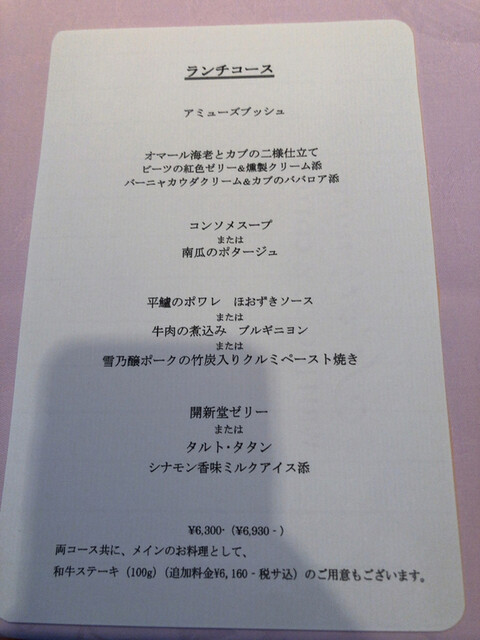 ランチコース
アミューズブッシュ
オマール海老とカブの二様仕立て
ビーツの紅色ゼリー&燻製クリーム添
バーニャカウダクリーム&カブのババロア添
コンソメスープ
または
南瓜のポタージュ
平鱸のポワレ　ほおずきソース
または
牛肉の煮込み　ブルギニョン
または
雪乃醸ポークの竹炭入りクルミペースト焼き
開新堂ゼリー
または
タルト・タタン
シナモン香味ミルクアイス添
¥6,300-（¥6,930‐）
両コース共に、メインのお料理として、
和牛ステーキ（100g）（追加料金¥6,160‐税サ込）のご用意もございます。